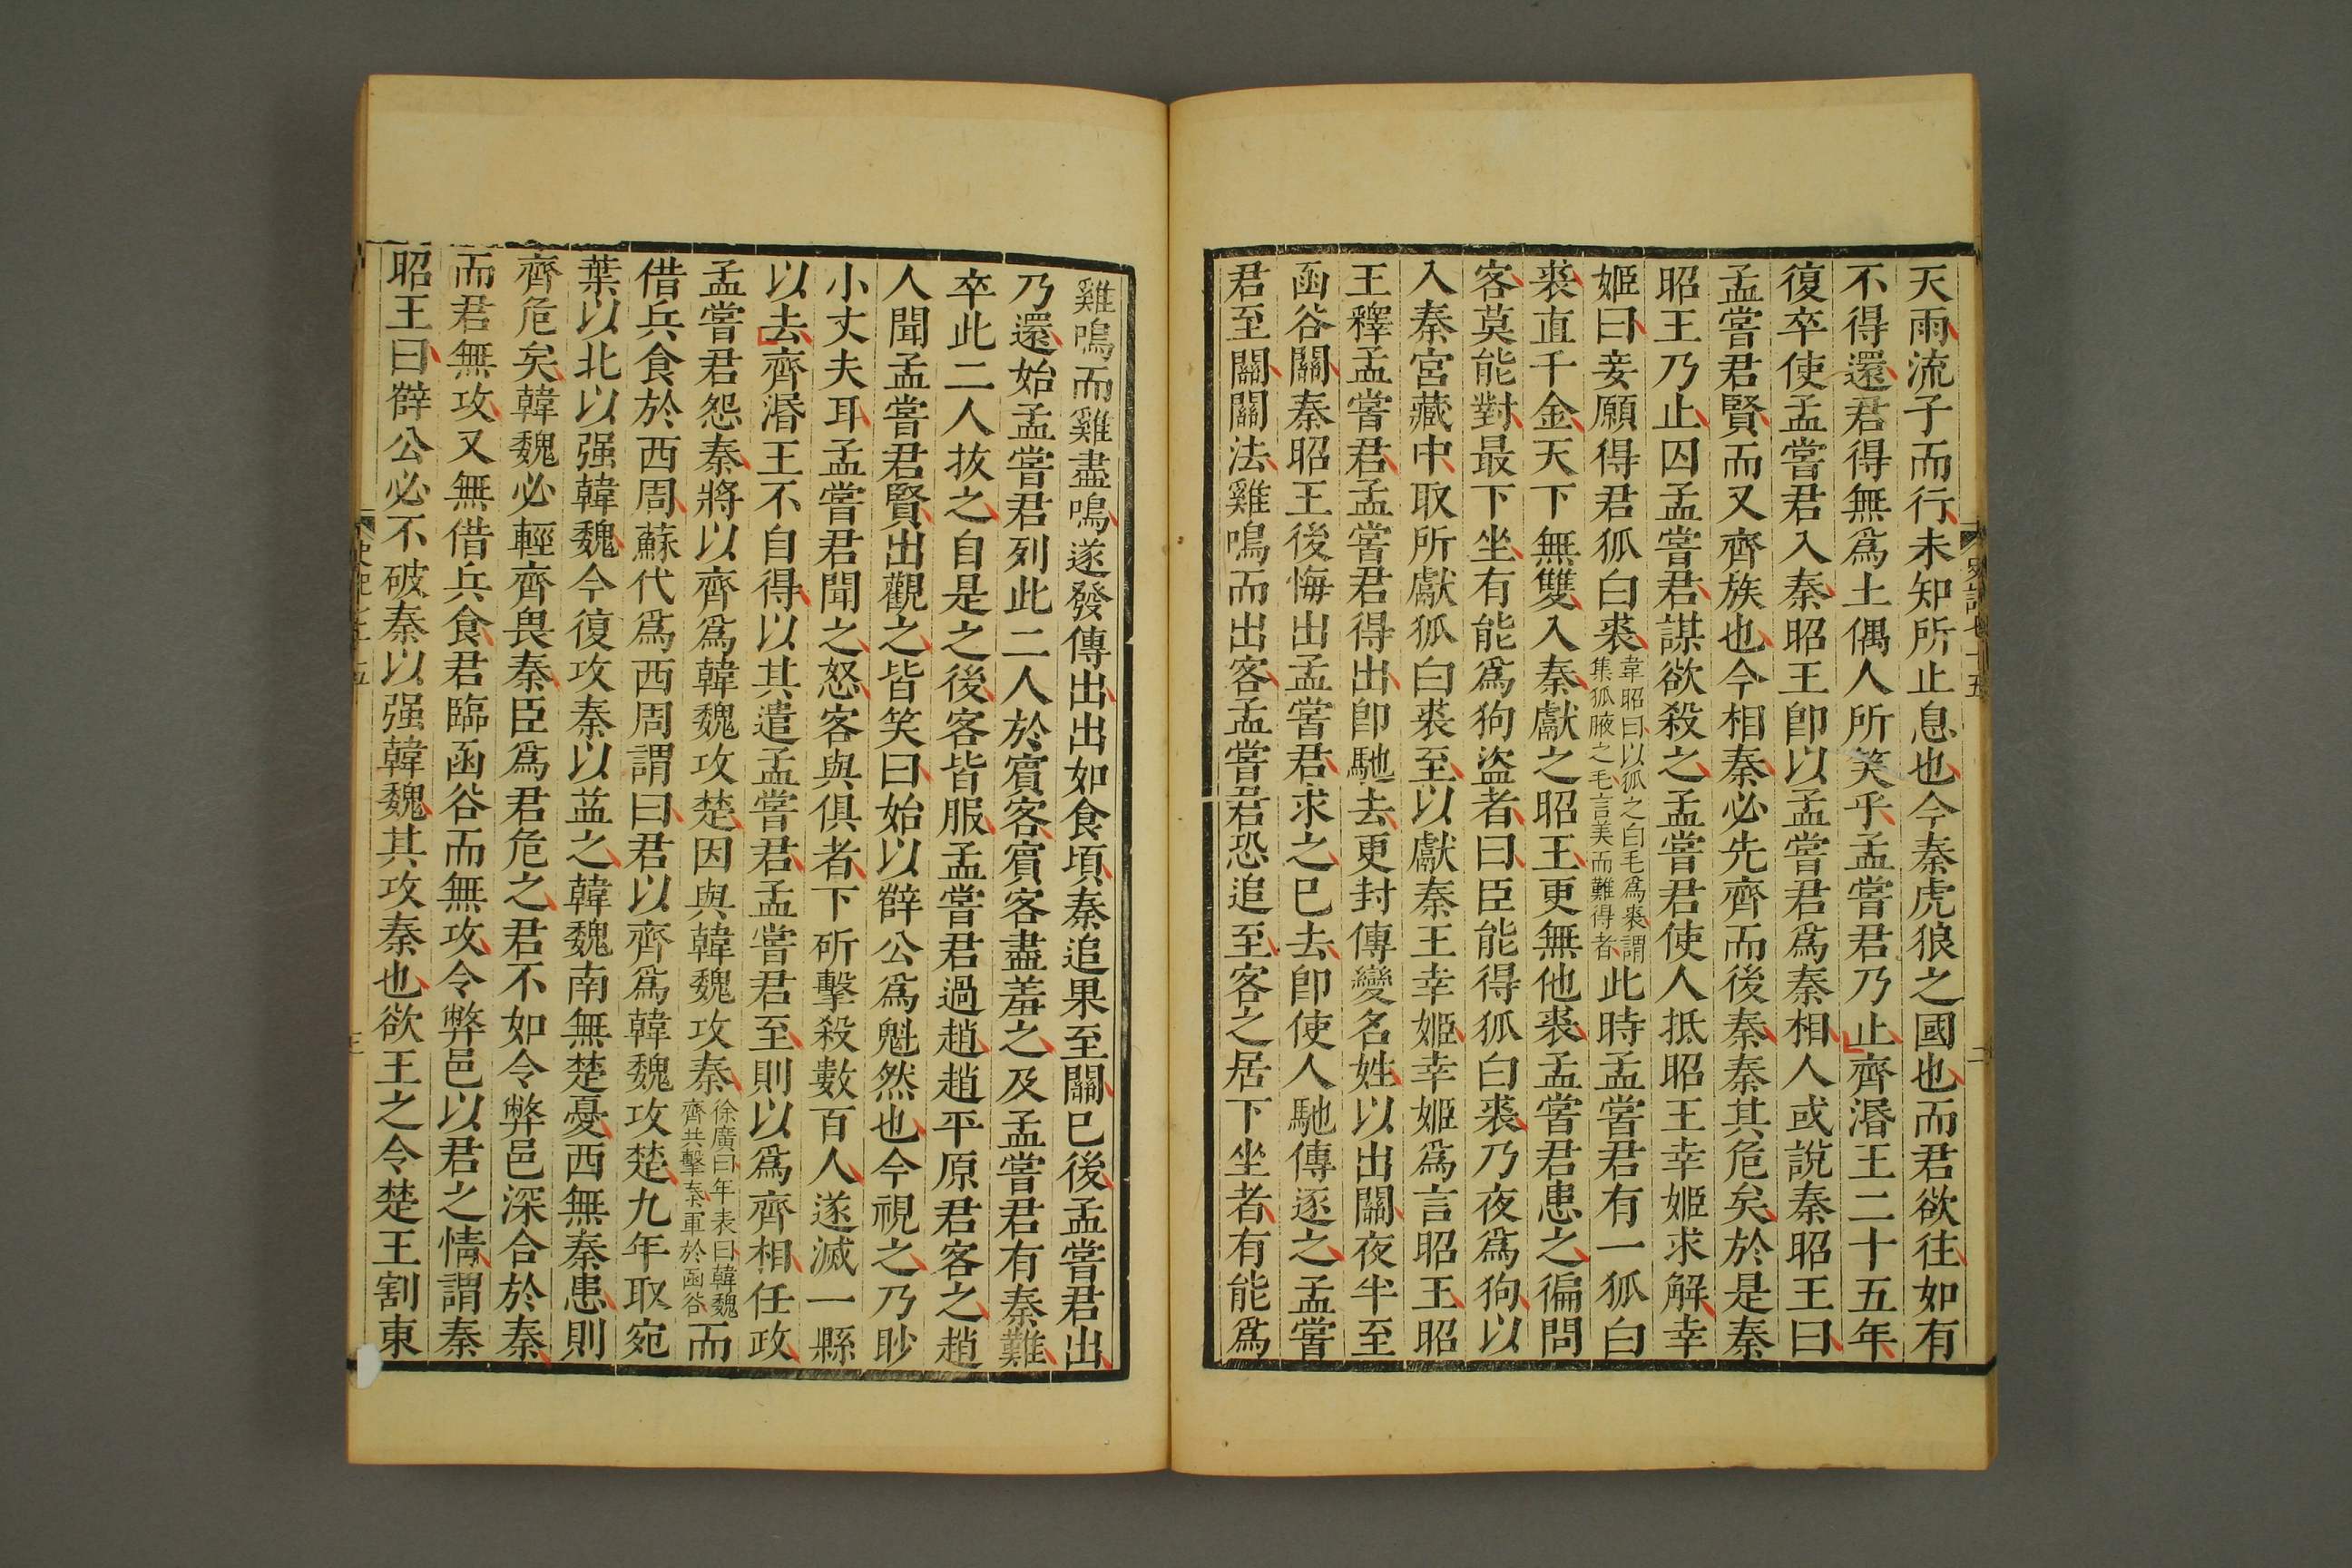 天雨流子而行未知所止息也今秦虎狼之國也而君欲往如有
不得還君得無爲土偶人所笑乎孟嘗君乃止齊湣王二十五年
復卒使孟嘗君入秦昭王卽以孟嘗君爲秦相人或說秦昭王曰
孟嘗君賢而又齊族也今相秦必先齊而後秦秦其危矣於是秦
昭王乃止囚孟嘗君謀欲殺之孟嘗君使人抵昭王幸姬求解幸
姬曰妾願得君狐白裘韋昭曰以狐之白毛爲裘謂集狐腋之毛言美而難得者此時孟嘗君有一狐白
裘直千金天下無雙入秦獻之昭王更無他裘孟嘗君患之徧問
客莫能對最下坐有能爲狗盜者曰臣能得狐白裘乃夜爲狗以
入秦宮藏中取所獻狐白裘至以獻秦王幸姬幸姬爲言昭王昭
王釋孟嘗君孟嘗君得出卽馳去更封傳變名姓以出關夜半至
函谷關秦昭王後悔出孟嘗君求之已去卽使人馳傳逐之孟嘗
君至關關法雞鳴而出客孟嘗君恐追至客之居下坐者有能爲
雞鳴而雞盡鳴遂發傳出出如食頃秦追果至關已後孟嘗君出
乃還始孟嘗君列此二人於賓客賓客盡羞之及孟嘗君有秦難
卒此二人拔之自是之後客皆服孟嘗君過趙趙平原君客之趙
人聞孟嘗君賢出觀之皆笑曰始以薛公爲魁然也今視之乃眇
小丈夫耳孟嘗君聞之怒客與俱者下斫擊殺數百人遂滅一縣
以去齊湣王不自得以其遣孟嘗君孟嘗君至則以爲齊相任政
孟嘗君怨秦將以齊爲韓魏攻楚因與韓魏攻秦徐廣曰年表曰韓魏齊共擊秦軍於函谷而
借兵食於西周蘇代爲西周謂曰君以齊爲韓魏攻楚九年取宛
葉以北以强韓魏今復攻秦以益之韓魏南無楚憂西無秦患則
齊危矣韓魏必輕齊畏秦臣爲君危之君不如令弊邑深合於秦
而君無攻又無借兵食君臨函谷而無攻令弊邑以君之情謂秦
昭王曰薛公必不破秦以强韓魏其攻秦也欲王之令楚王割東
史記七十五
二